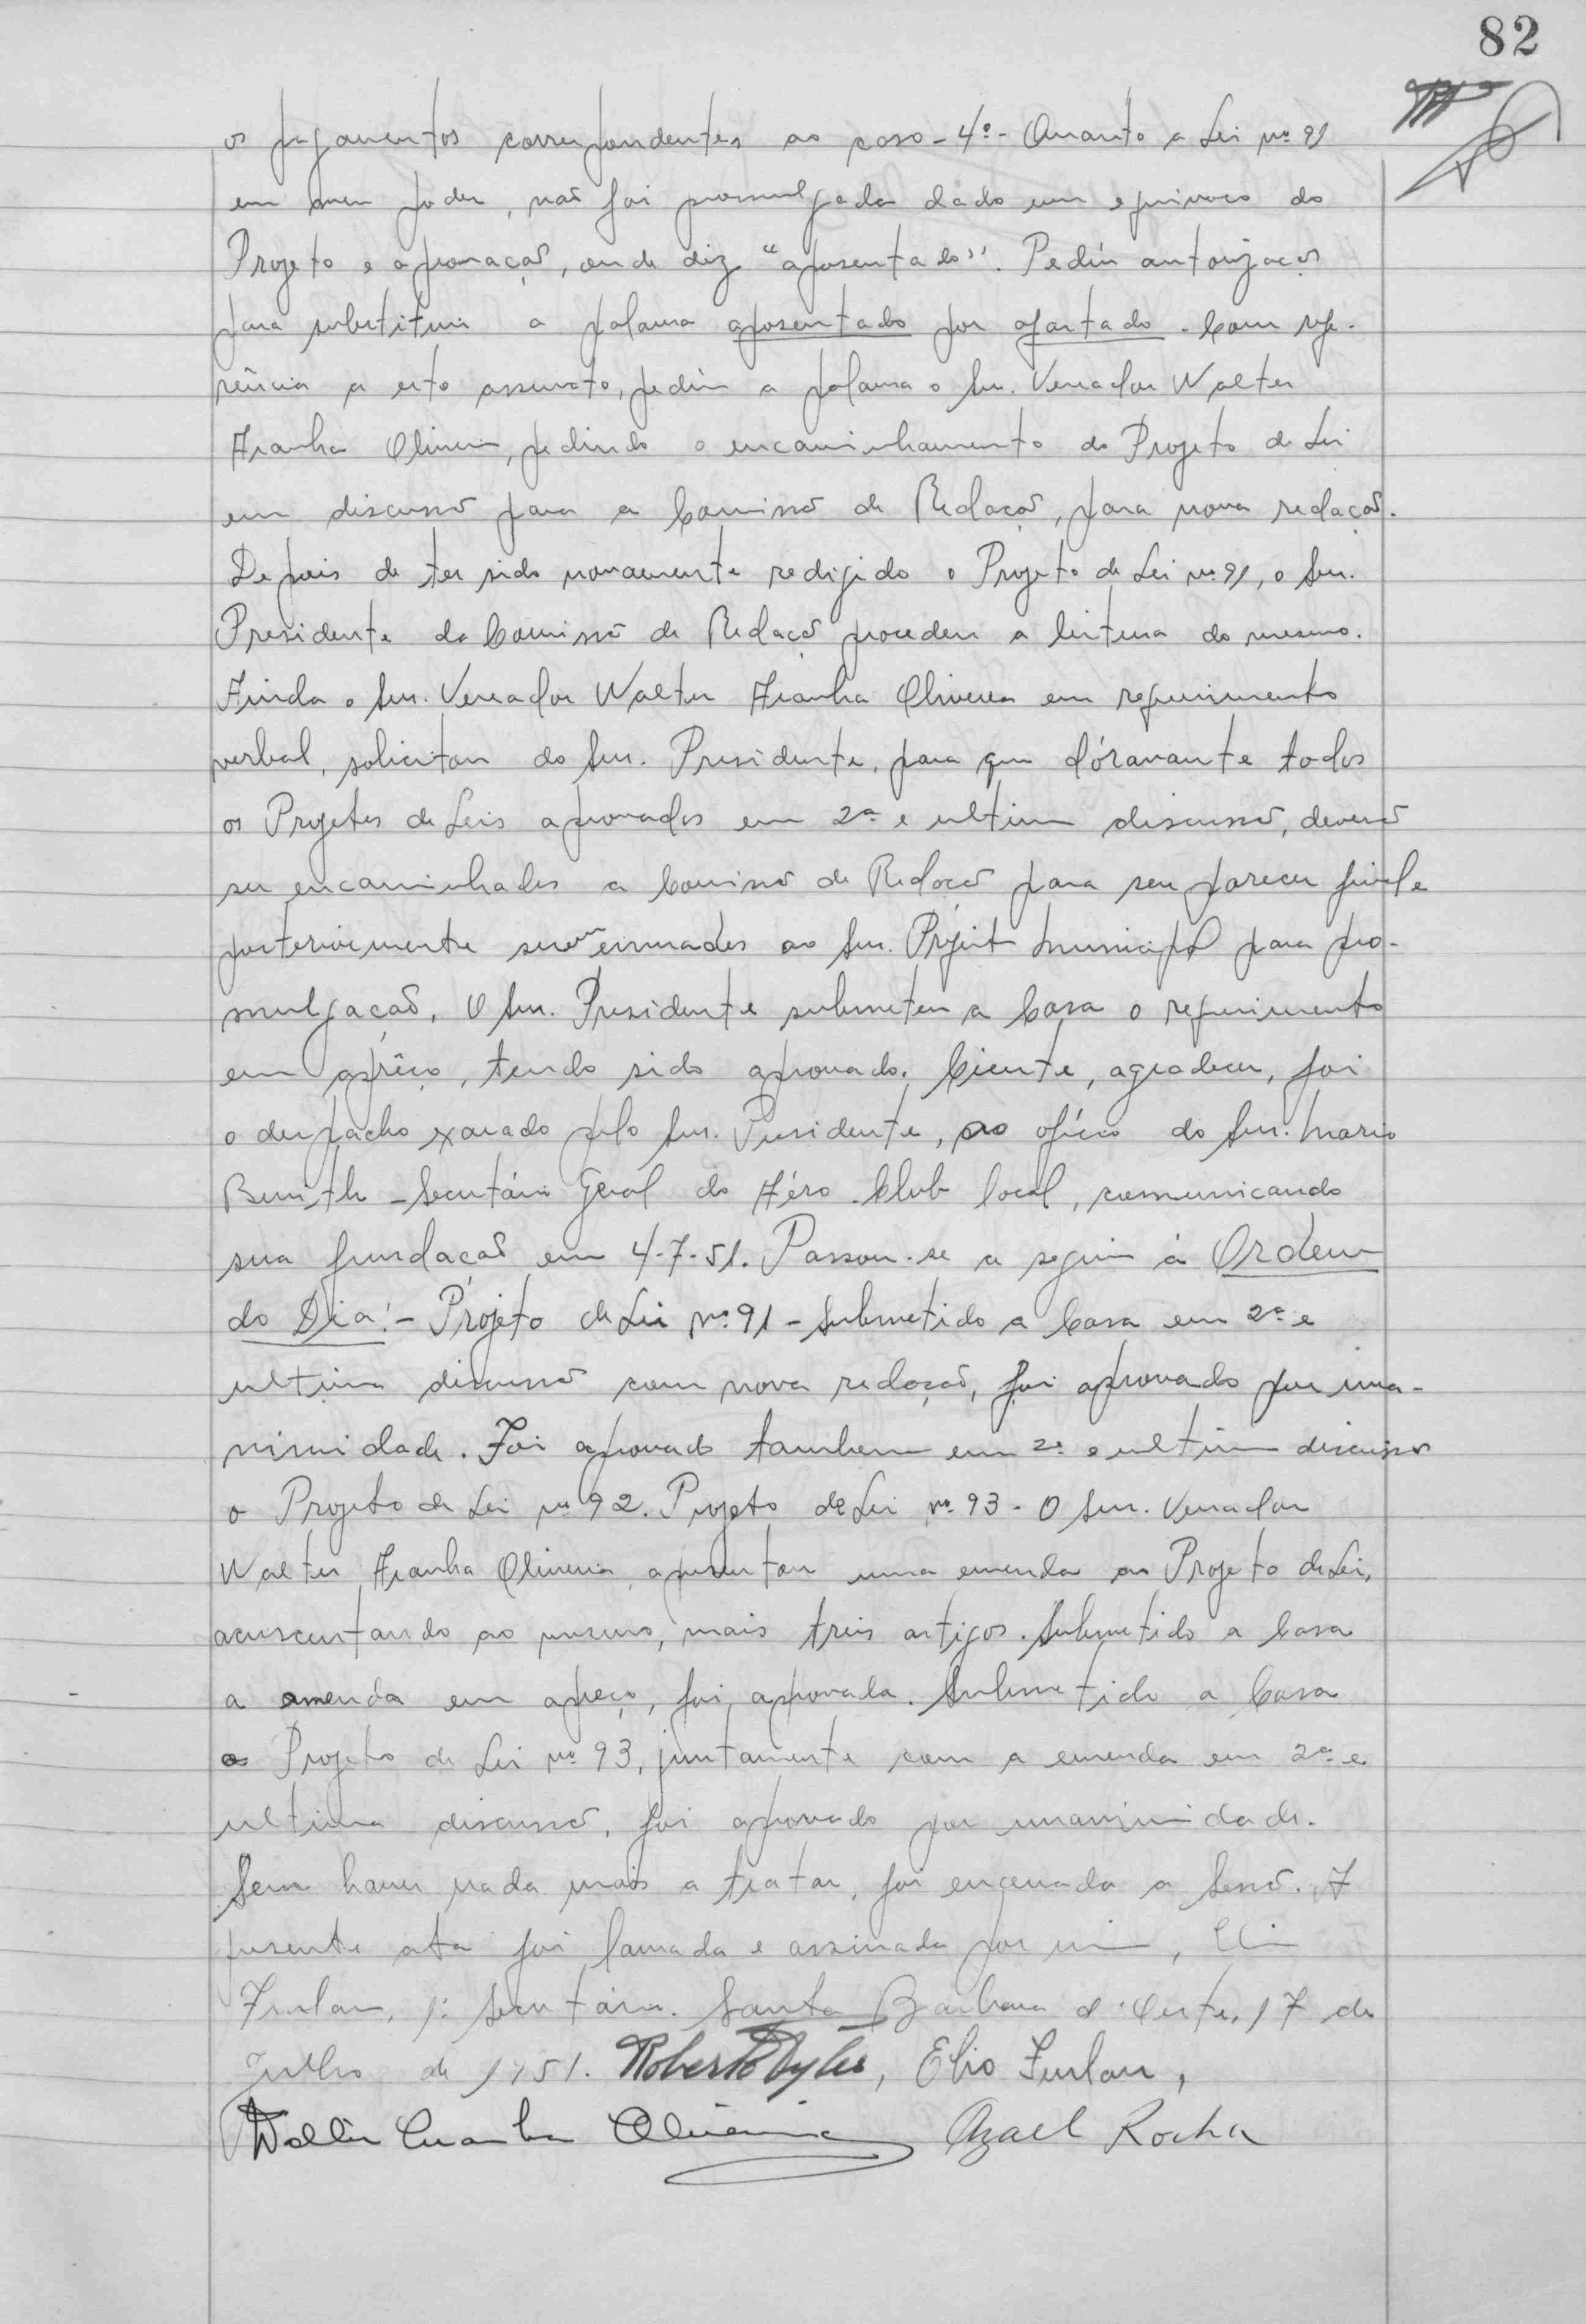 82
os pagamentos correspondentes ao caso - 4º - Quanto a Lei nº 91
em meu poder, não foi promulgada dado um equivoco do
Projeto e aprovação, onde diz "aposentado". Pediu autorização
para substituir a palavra aposentado por afastado. Com refe-
rência a esto assunto, pediu a palavra o Snr. Vereador Walter
Aranha Oliveira, pedindo o encaminhamento do Projeto de Lei
em discussão para a Comissão de Redação, para nova redação.
Depois de ter sido novamente redigido o Projeto de Lei nº 91, o Snr.
Presidente da Comissão de Redação procedeu a leitura do mesmo.
Ainda o Snr. Vereador Walter Aranha Oliveira em requerimento
verbal, solicitou do Snr. Presidente, para que dóravante todos
os Projetos de Leis aprovados em 2ª e ultima discussão, deverão
ser encaminhados a Comissão de Redação para seu parecer final e
posteriormente serem enviados ao Snr. Prefeito Municipal para pro-
mulgação. O Snr. Presidente submeteu a Casa o requerimento
em aprêço, tendo sido aprovado. Ciente, agradecer, foi
o despacho exarado pelo Snr. Presidente, ao ofício do Snr. Mario
- Secretário Geral do Aéro-Club local, comunicando
sua fundação em 4-7-51. Passou-se a seguir á Ordem
do Dia: - Projeto de Lei nº 91 - Submetido a Casa em 2ª e
ultima discussão com nova redação, foi aprovado por una-
nimidade. Foi aprovado tambem em 2ª e ultima discussão
o Projeto de Lei nº 92. Projeto de Lei nº 93 - O Snr. Vereador
Walter Aranha Oliveira, apresentou uma emenda ao Projeto de Lei,
acrescentando ao mesmo, mais treis artigos. Submetido a Casa
a emenda em apreço, foi aprovada. Submetido a Casa
o Projeto de Lei nº 93, juntamente com a emenda em 2ª e
ultima discussão, foi aprovado por unanimidade.
Sem haver nada mais a tratar, foi encerrada a Sessão. A
presente ata foi lavrada e assinada por mim, Elio
Furlan, 1º Secretário. Santa Barbara d'Oeste, 17 de
Julho de 1951. Roberto , Elio Furlan,
Walter Aranha Oliveira Azael Rocha